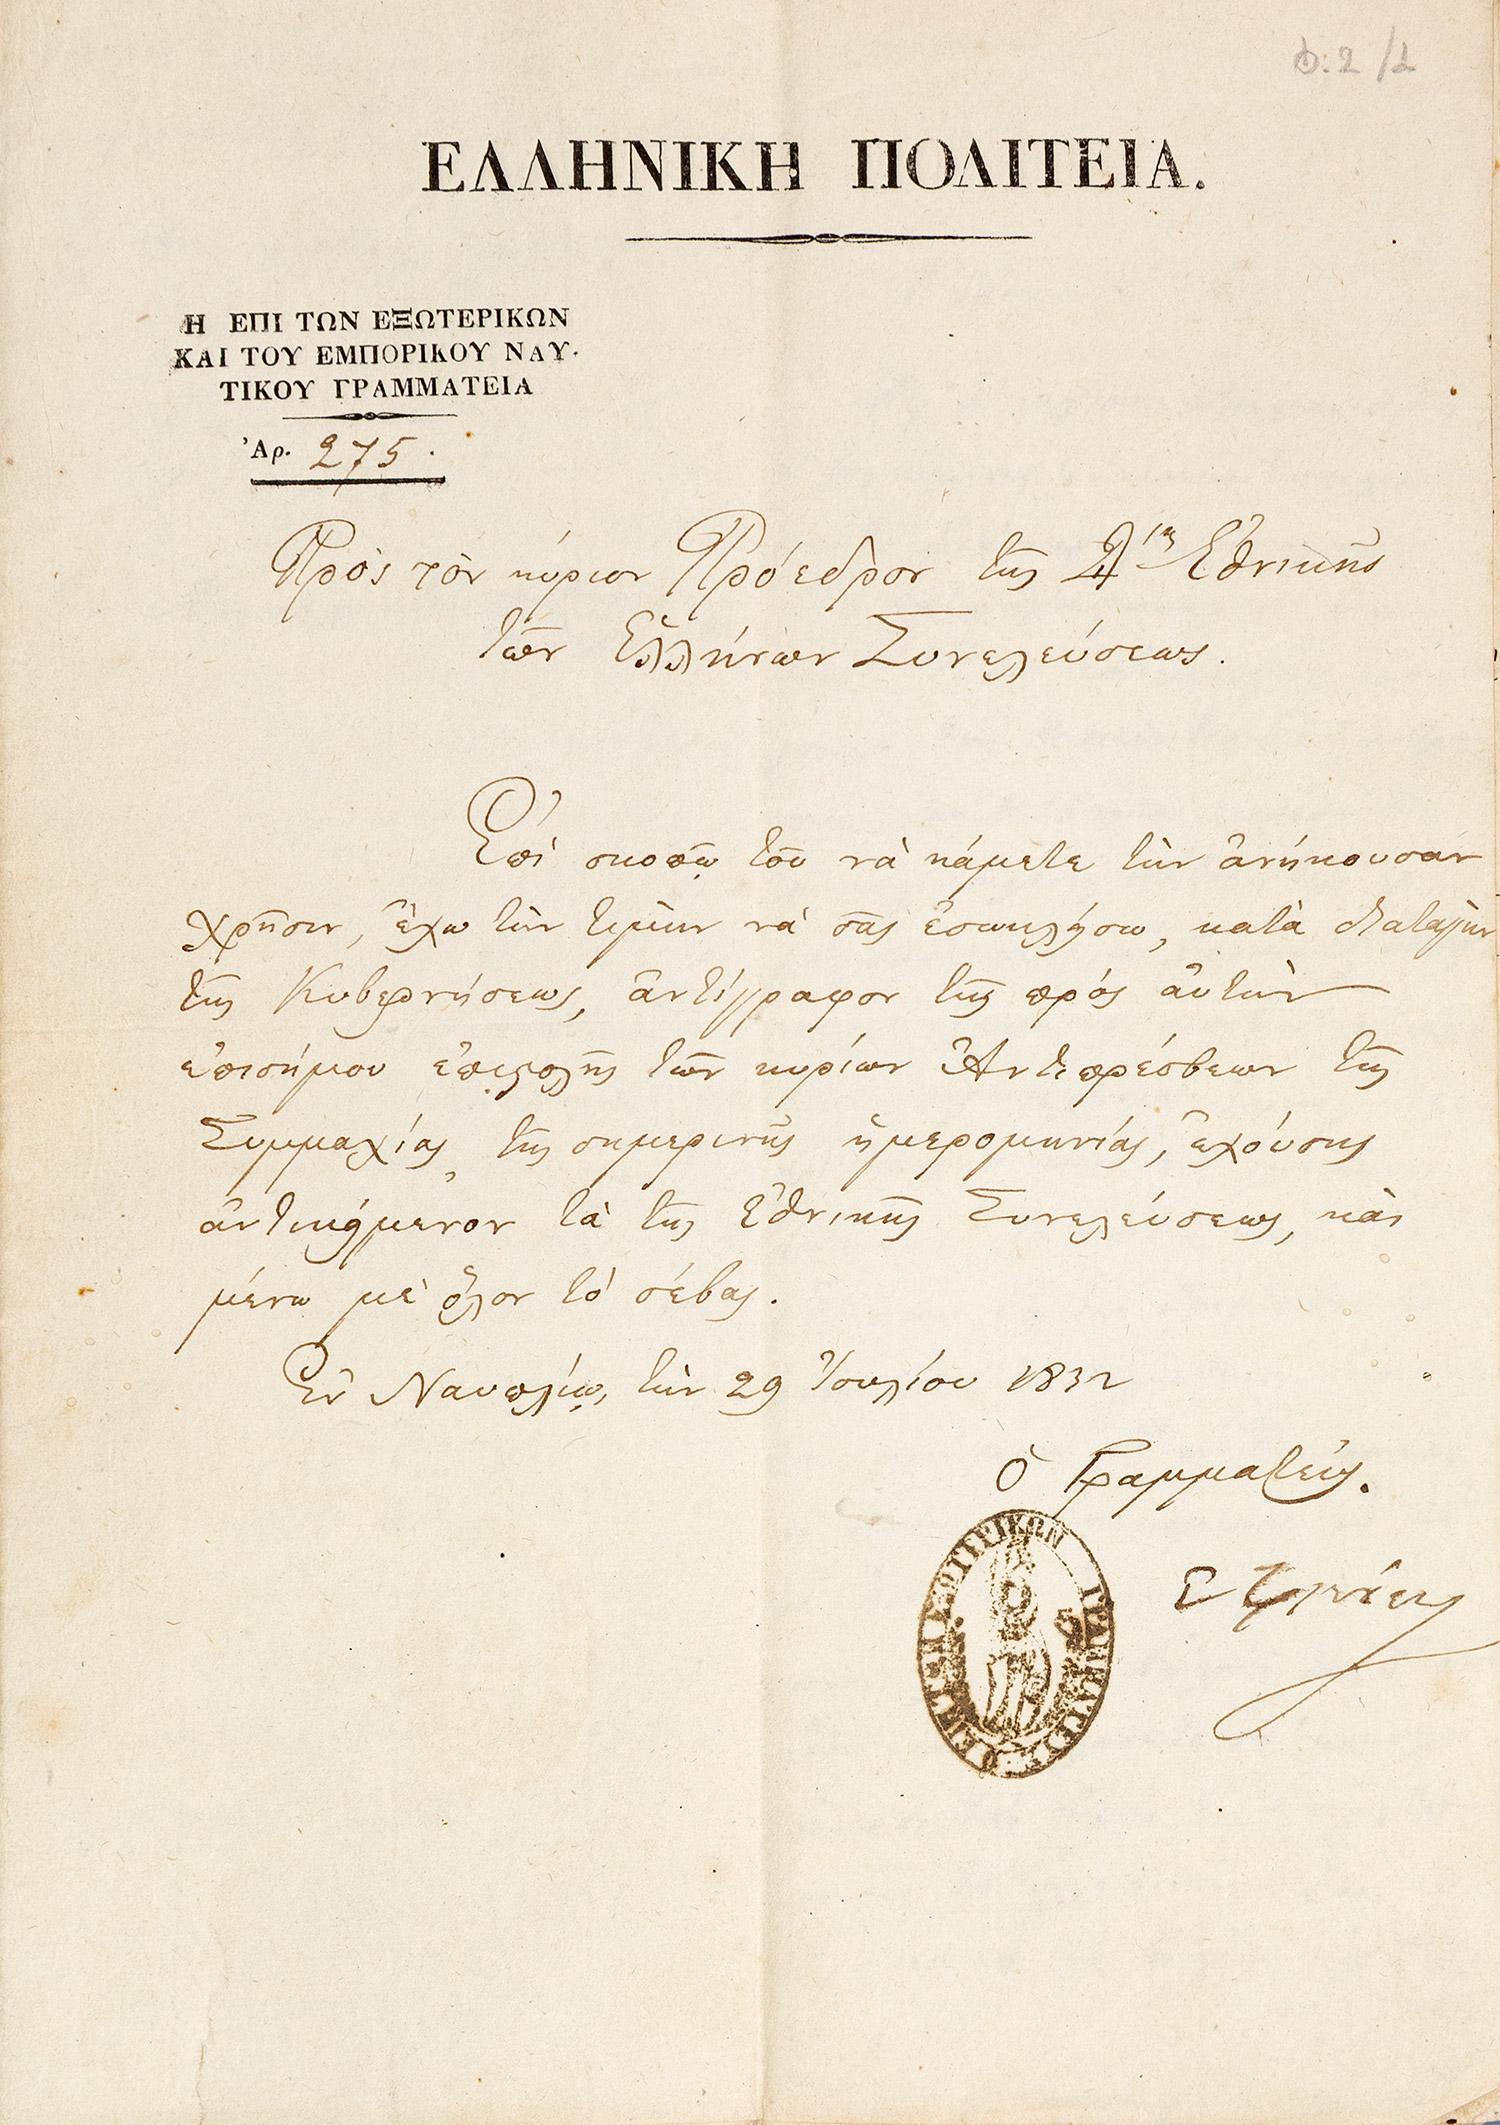 Φ: 2/1
ΕΛΛΗΝΙΚΗ ΠΟΛΙΤΕΙΑ.
Η ΕΠΙ ΤΩΝ ΕΞΩΤΕΡΙΚΩΝ
ΚΑΙ ΤΟΥ ΕΜΠΟΡΙΚΟΥ ΝΑΥ-
ΤΙΚΟΥ ΓΡΑΜΜΑΤΕΙΑ
Ἀρ. 275.
Πρὸς τὸν κύριον Πρόεδρον τῆς Δ´ ης Ἐθνικῆς
τῶν Ἑλλήνων Συνελεύσεως.
Ἐπὶ σκοπῷ τοῦ νὰ κάμετε τὴν ἀνήκουσαν
χρῆσιν, ἔχω τὴν τιμὴν νὰ σᾶς ἐσωκλήσω, κατὰ διαταγὴν
τῆς Κυβερνήσεως, ἀντίγραφον τῆς πρὸς αὐτὴν
ἐπισήμου ἐπιστολῆς τῶν κυρίων Ἀντιπρέσβεων τῆς
Συμμαχίας, τῆς σημερινῆς ἡμερομηνίας, ἐχούσης
ἀντικείμενον τὰ τῆς Ἐθνικῆς Συνελεύσεως, καὶ
μένω μὲ ὅλον τὸ σέβας.
Ἐν Ναυπλίῳ, τὴν 29 Ἰουλίου 1832
Ὁ Γραμματεύς.
Ο ΕΠΙ ΤΩΝ ΕΞΩΤΕΡΙΚΩΝ ΓΡΑΜΜΑΤΕΥΣ